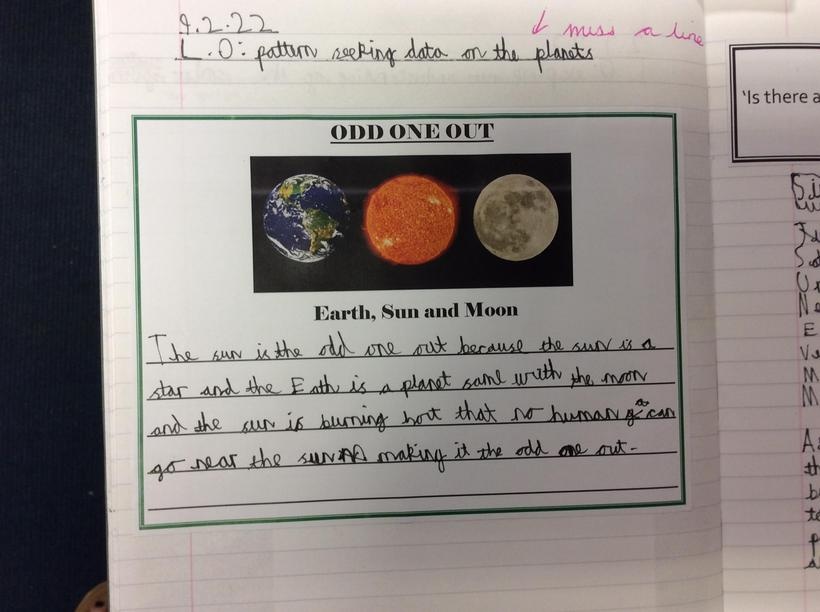 9.2.22
↓ miss a line
L.O: pattern seeking data on the planets
ODD ONE OUT
Earth, Sun and Moon
The sun is the odd one out because the sun is a
star and the Eath is a planet same with the moon
and the sun is burning hot that no human can
go near the sun making it the odd one out.
'Is there a